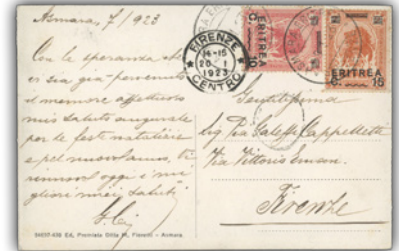 Asmara, 7/1923
Con la speranza che
ci sia già pervenuto
il memore affettuoso
mio saluto augurale
per le feste natalizie
e pel nuovo anno, Vi
rinnovo oggi i mi
gliori miei saluti
FIRENZE
14-15
20 1
1923
CENTRO
ERITREA
C. 10
ERITREA
C. 15
Gentilissima
Sig.ra Galeffi Cappelletti
Via Vittorio Eman.
Firenze
Ed. Premiata Ditta M. Fioretti - Asmara